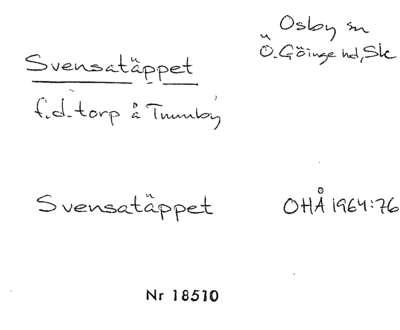 Osby sn
Ö. Göinge hd, Sk
Svensatäppet
f.d. torp å Tmmby
Svensatäppet
OHÅ 1964:76
Nr 18510